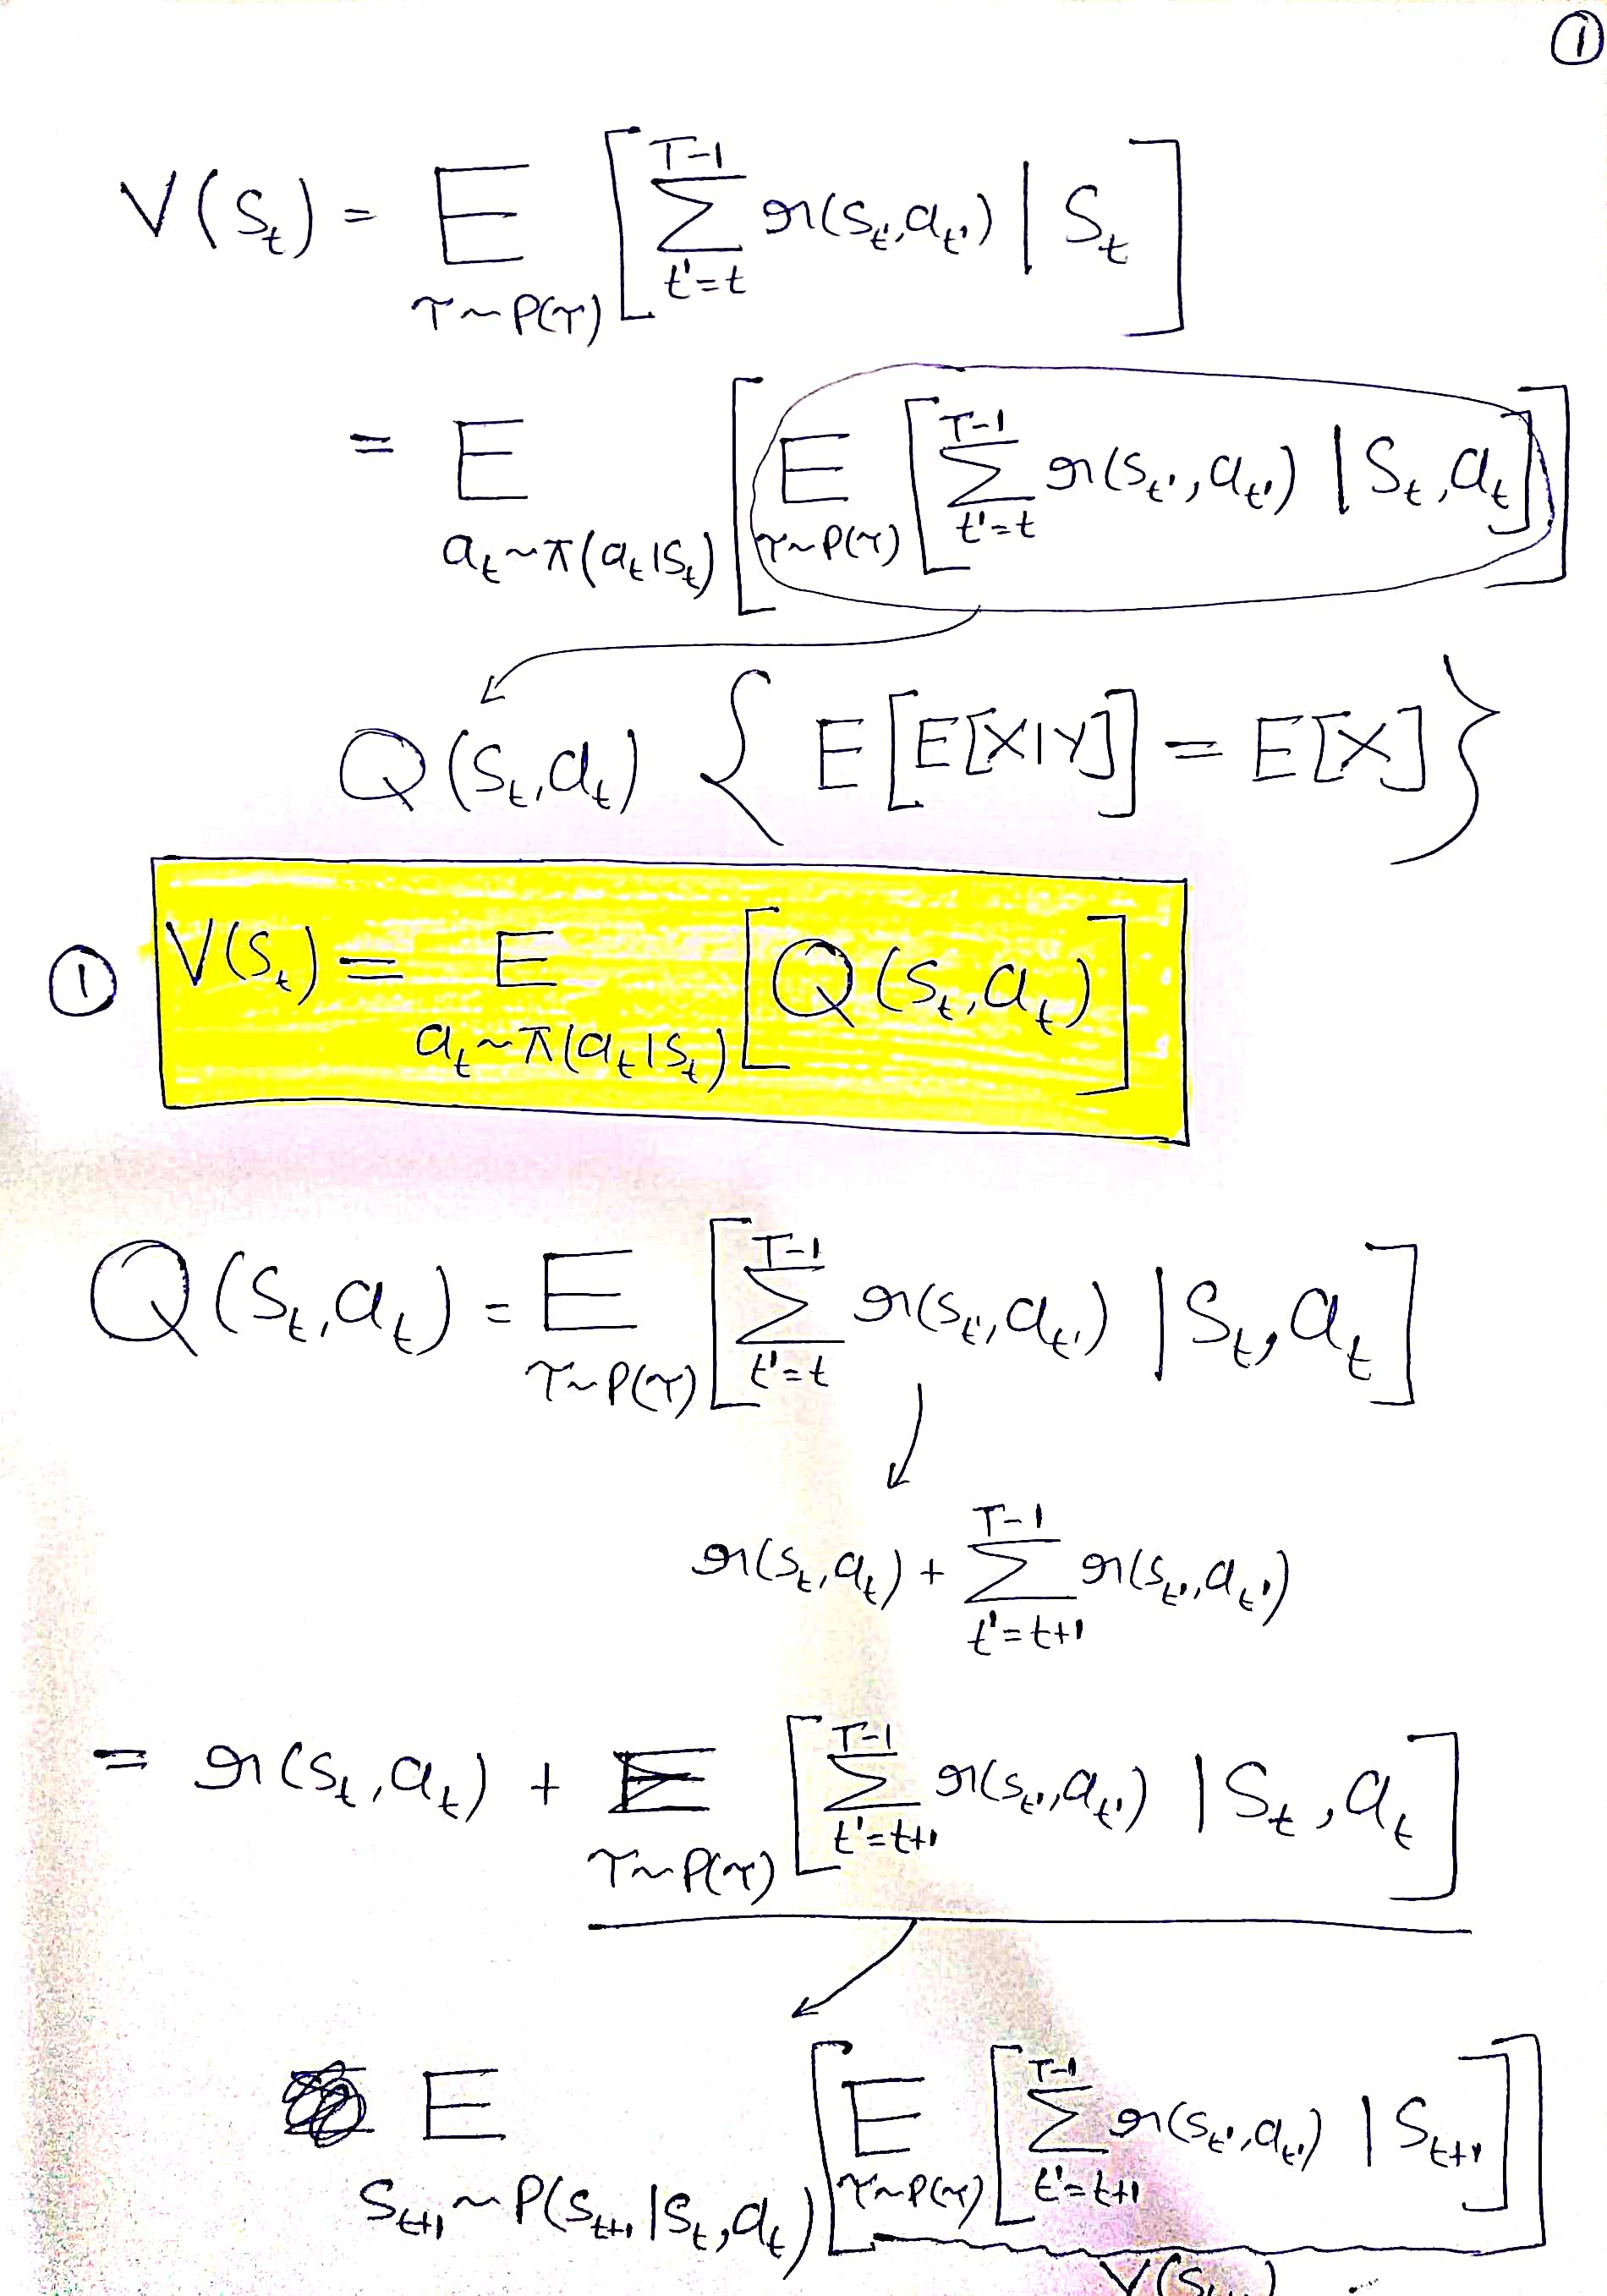 ①
V(S_t) = E_{τ~P(τ)} [ Σ_{t'=t}^{T-1} r(S_{t'}, a_{t'}) | S_t ]
= E_{a_t~π(a_t|S_t)} [ E_{τ~P(τ)} [ Σ_{t'=t}^{T-1} r(S_{t'}, a_{t'}) | S_t, a_t ] ]
Q(S_t, a_t) { E[E[X|Y]] = E[X] }
① V(S_t) = E_{a_t~π(a_t|S_t)} [ Q(S_t, a_t) ]
Q(S_t, a_t) = E_{τ~P(τ)} [ Σ_{t'=t}^{T-1} r(S_{t'}, a_{t'}) | S_t, a_t ]
r(S_t, a_t) + Σ_{t'=t+1}^{T-1} r(S_{t'}, a_{t'})
= r(S_t, a_t) + E_{τ~P(τ)} [ Σ_{t'=t+1}^{T-1} r(S_{t'}, a_{t'}) | S_t, a_t ]
E_{S_{t+1}~P(S_{t+1}|S_t, a_t)} [ E_{τ~P(τ)} [ Σ_{t'=t+1}^{T-1} r(S_{t'}, a_{t'}) | S_{t+1} ] ]